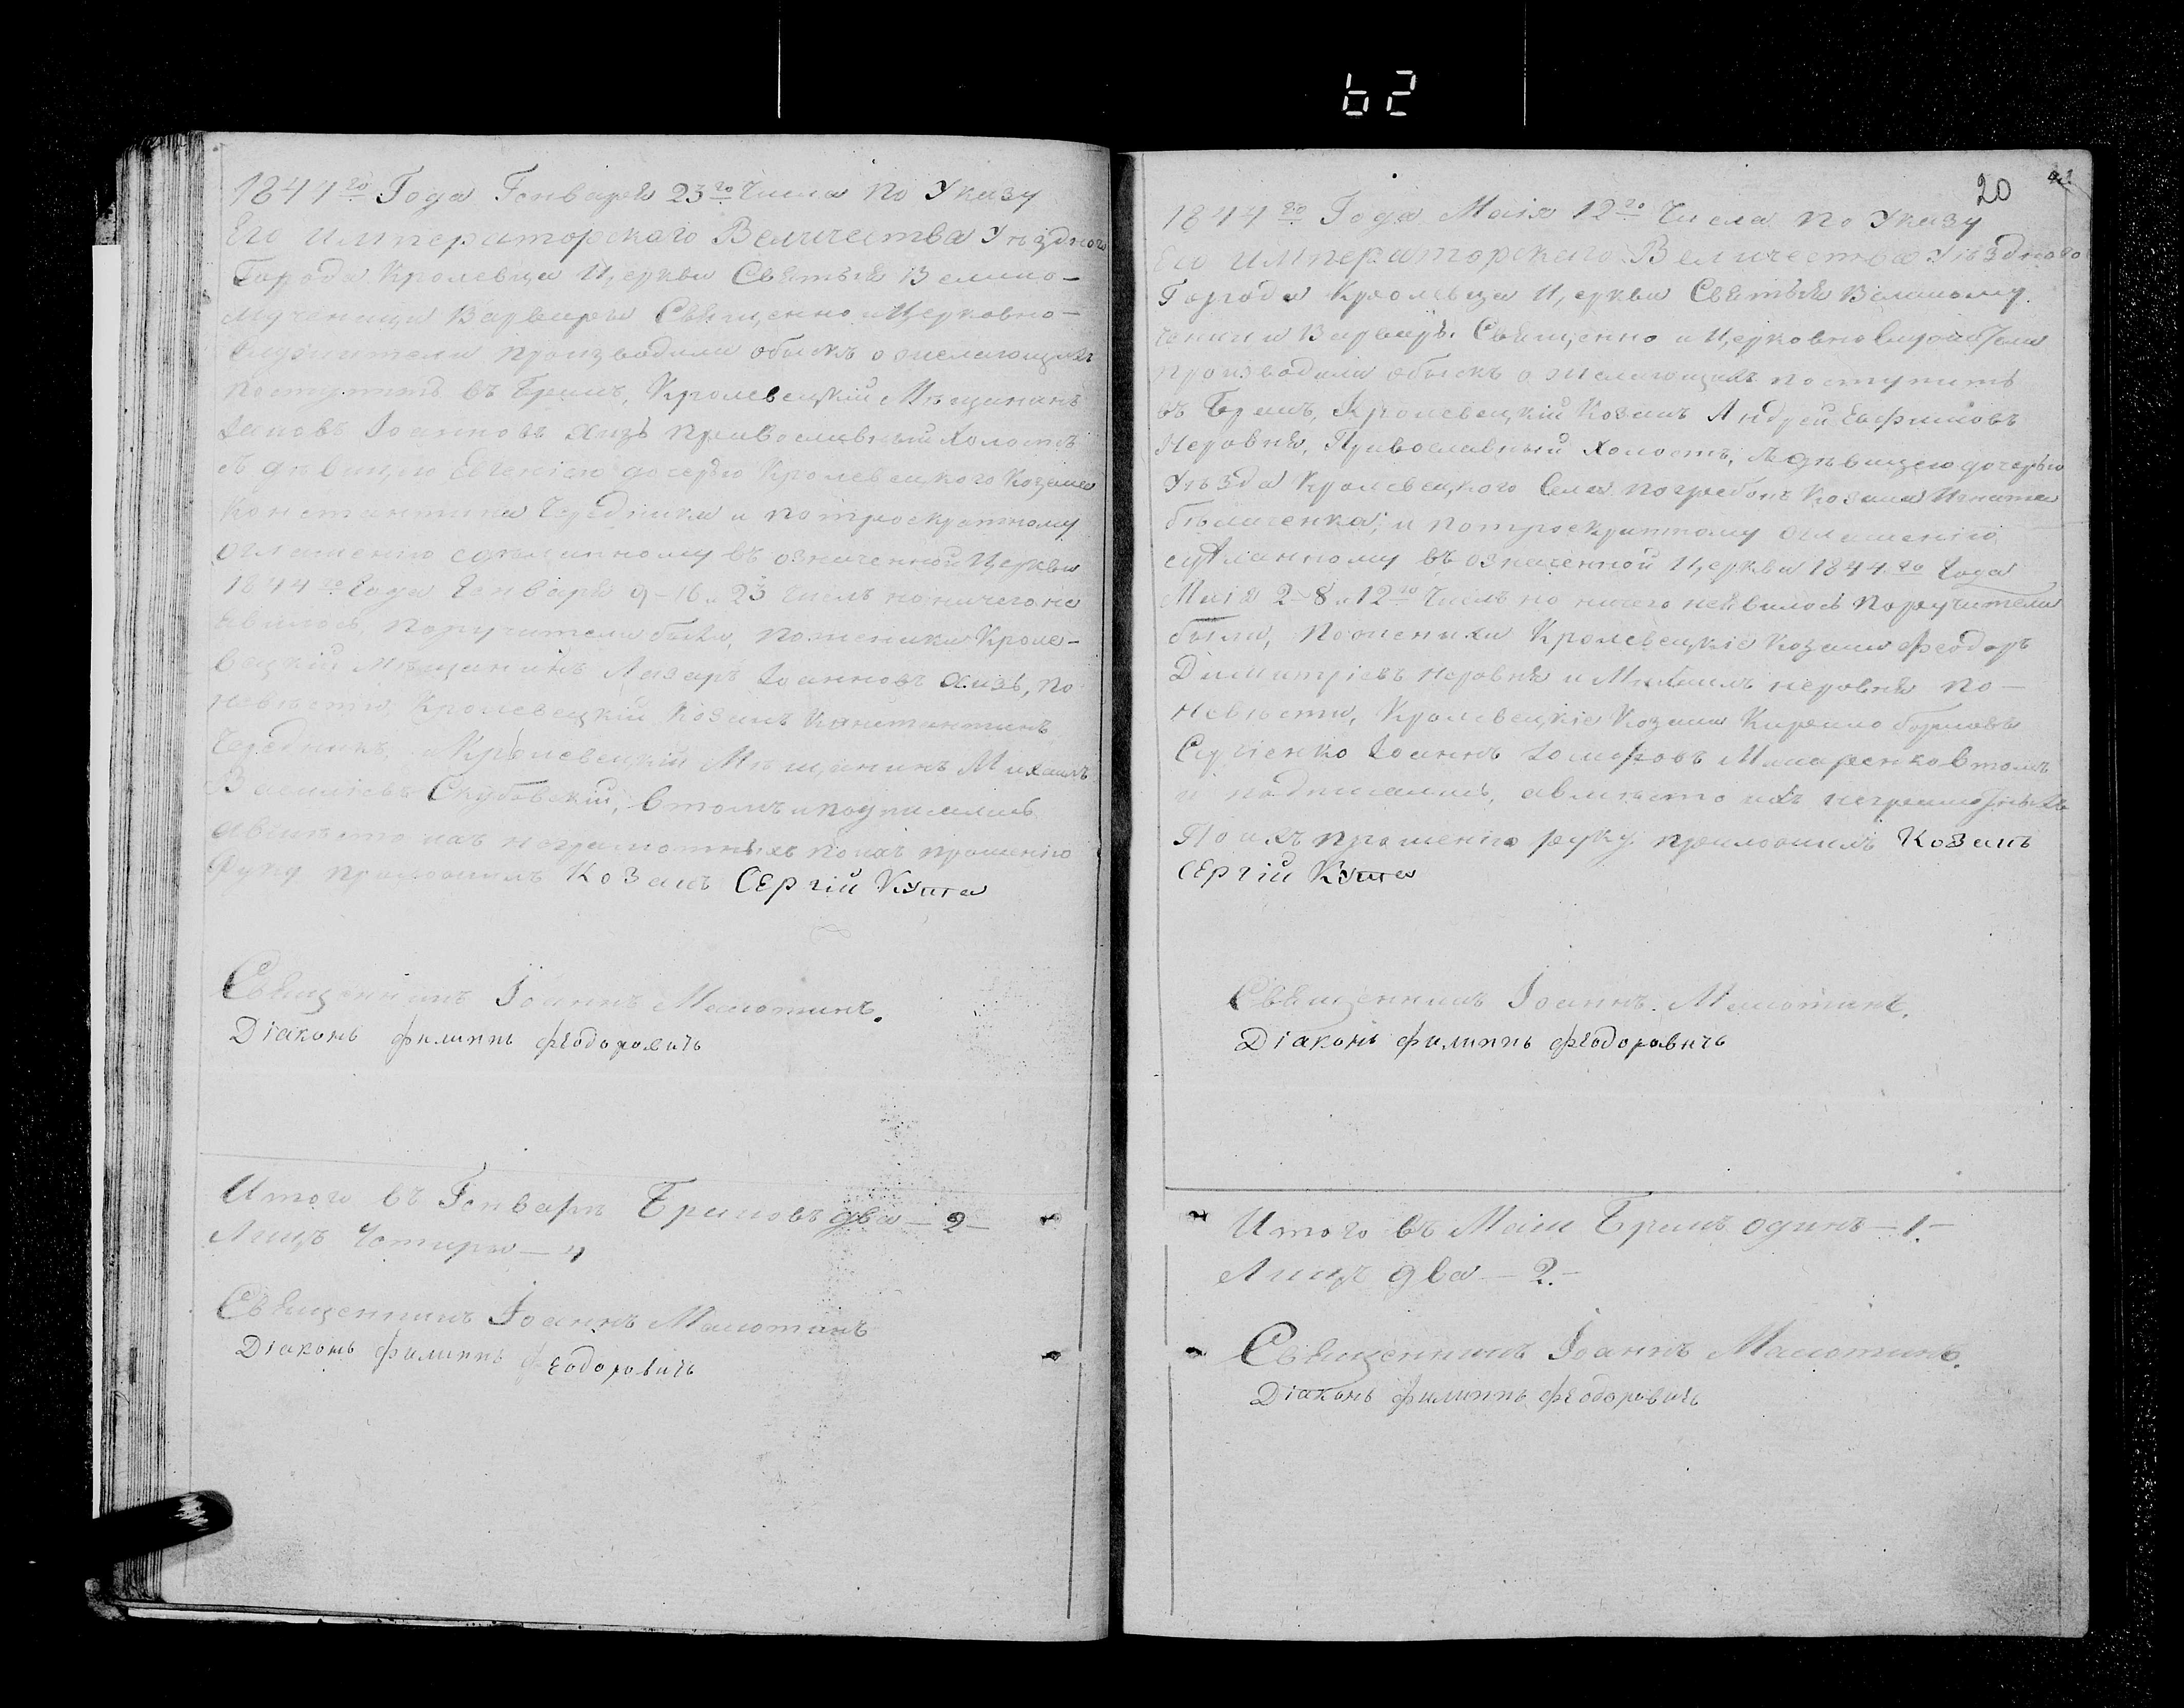 62
1844го Года Генваря 23го Числа по Указу
Его Императорского Величества Уѣздного
Города Кролевца Церкви Святыя Велико-
мученици Варвары Священно и Церковно-
служители производили обыскъ о желающихъ
поступить въ Бракъ, Кролевецкій Мѣщанинъ
Іоанновъ православный холостъ
съ дѣвицею Евгеніею дочерью Кролевецкого Козака
Константина Чередника и потроекратному
оглашенію сдѣланному въ означенной Церкви
1844го Года Генваря 9-16 и 23 числъ но ничего не
явилось, поручители были, пожениха Кроле-
вецкій Мѣщанинъ Лазарь Іоанновъ по
невѣсти Кролевецкій Козакъ Константинъ
Чередникъ, и Кролевецкій Мѣщанинъ Михаилъ
Василіевъ Скубовскій, Втомъ и подписались
авмѣсто ихъ неграмотныхъ поихъ прошенію
руку приложилъ Козакъ СЕргій Кушта
Священникъ Іоаннъ Малютинъ.
Діаконъ Филиппъ Феодоровичъ
Итого въ Генварѣ Браковъ два - 2 -
Лицъ Чотири - 4
Священникъ Іоаннъ Малютинъ
Діаконъ Филиппъ Феодоровичъ
20
1844го Года Маія 12го Числа по Указу
Его Императорского Величества Уѣздного
Города Кролевца Церкви Святыя Великому
ченици Варвары. Священно и Церковно служители
производили обыскъ о желающихъ поступить
въ Бракъ, Кролевецкій Козакъ Андрей Евфимовъ
Неровня, Православный холостъ, съ дѣвицею дочерью
Уѣзда Кролевецкого Села Погребокъ Козака Игната
и потроекратному оглашенію
сдѣланному въ означенной Церкви 1844го Года
Маія 2-8 и 12го Числъ но ничего неявилось поручители
были, пожениха Кролевецкіе Козаки Феодоръ
Димитріевъ Неровня и Михаилъ Неровня по-
невѣсти, Кролевецкіе Козаки Кирило
Сергіенко Іоаннъ Макаренко Втомъ
и подписались, авмѣсто ихъ неграмотныхъ
По ихъ прошенію руку приложилъ Козакъ
СЕргій Кушта
Священникъ Іоаннъ. Малютинъ.
Діаконъ Филиппъ Феодоровичъ
Итого въ Маіи Бракъ одинъ - 1. -
Лицъ два - 2. -
Священникъ Іоаннъ Малютинъ.
Діаконъ Филиппъ Феодоровичъ